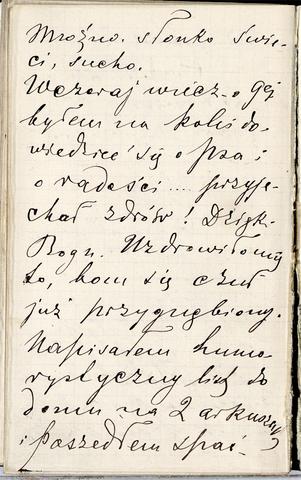 Mroźno. słonko świe-
ci, sucho.
Wczoraj wiecz. o 9ej
byłem na kolei do-
wiedzieć się o psa i
o radości.... przyje-
chał zdrów! Dzięk.
Bogu. Uzdrowiło mię
to, bom się czuł
już przygnębiony.
Napisałem humo-
rystyczny list do
domu na 2 arkuszach
i poszedłem spać.